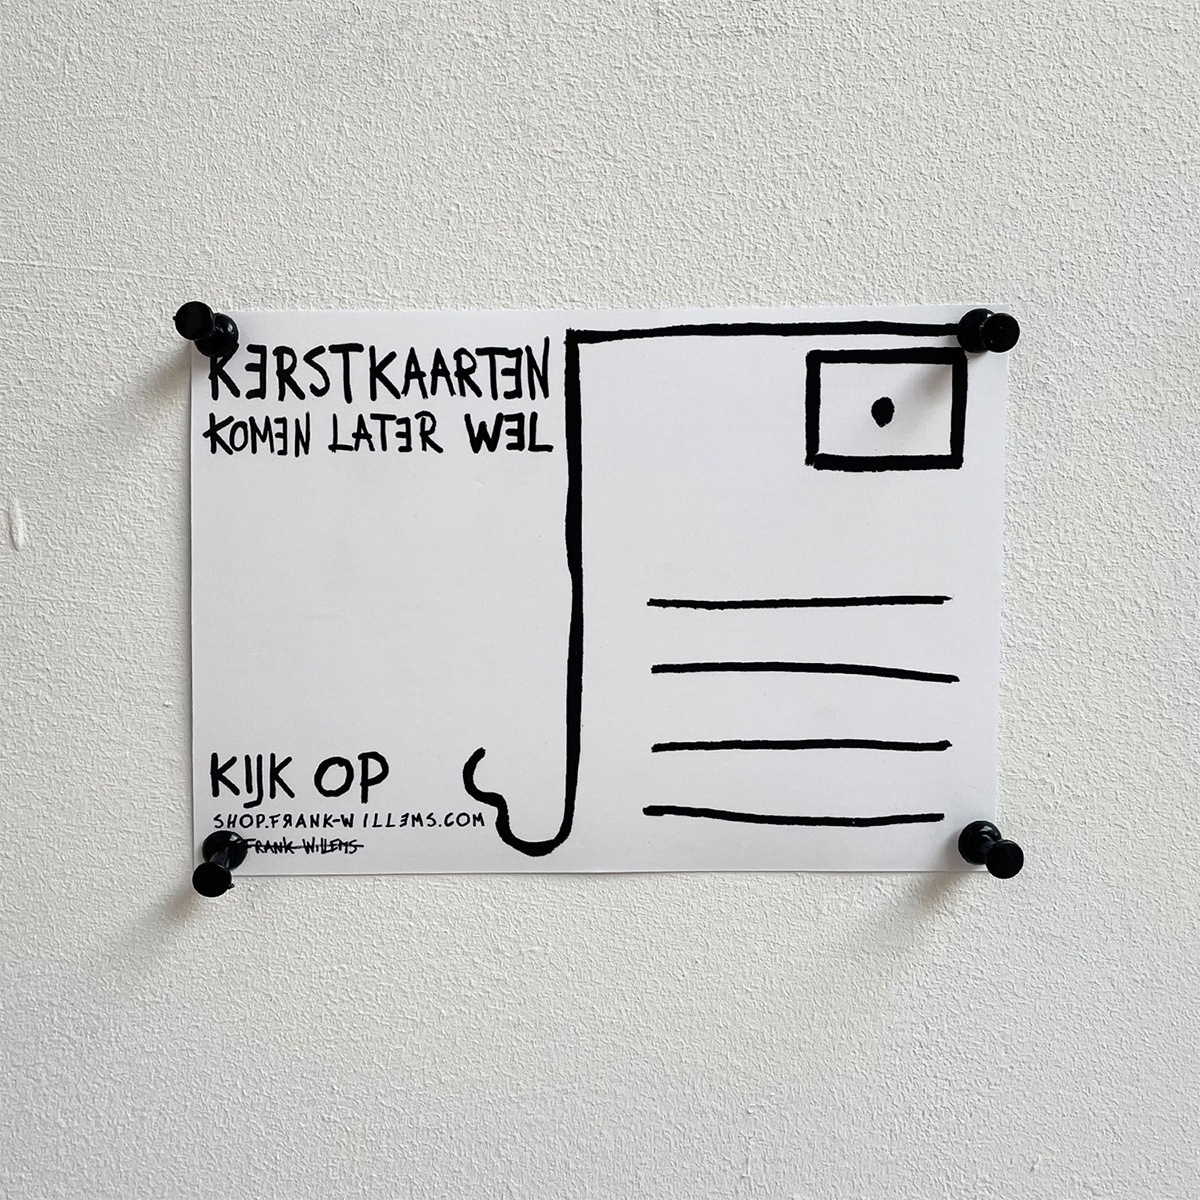 KERSTKAARTEN
KOMEN LATER WEL
KIJK OP
SHOP.FRANK-WILLEMS.COM
FRANK-WILLEMS